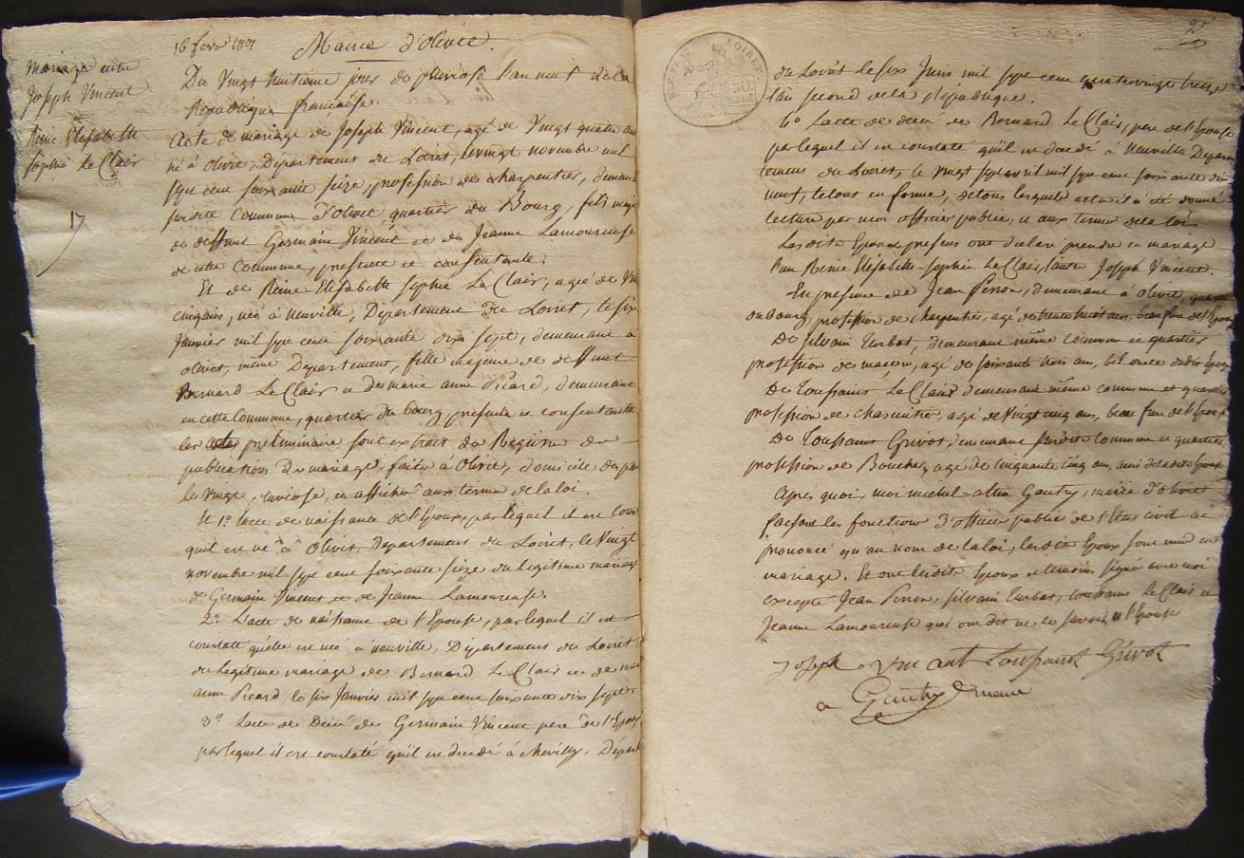 Mariage entre
Joseph Vincent
Reine Elisabette
Sophie Le Clair
17
16 fevr 1801
Mairie d'olivet.
Du Vingt huitieme jour de pluviose l'an neuf de la
Republique francaise.
Acte de mariage de Joseph Vincent, agé de Vingt quatre ans
né à olivet, Département du Loiret, le vingt novembre mil
sept cent soixante seize, profession de charpentier, demeurant
susdite commune d'olivet quartier du Bourg, fils majeur
de deffunt Germain Vincent et de Jeanne Lamoureuse
de cette commune, presente et consentante;
Et de Reine Elisabette Sophie Le Clair, agée de Vingt
cinq ans, née à neuville, Département du Loiret, le six
Janvier mil sept cent soixante dix sept, demeurant a
olivet, même Département, fille majeure de deffunt
Bernard Le Clair et de marie anne Picard, demeurant
en cette commune, quartier du bourg, presente et consentante
les actes preliminaire sont extrait du Registre de
publications de mariage, faite à Olivet, domicile des
le vingt, et affiché aux terme de la loi.
Et 1º L'acte de naissance de l'Epoux, par lequel il
qu'il est né à Olivet, Département du Loiret, le Vingt
novembre mil sept cent soixante seize du legitime mariage
de Germain Vincent et de Jeanne Lamoureuse.
2º L'acte de naissance de l'Epouse, par lequel il est
constaté qu'elle est née a neuville, Département du Loiret
du legitime mariage de Bernard Le Clair et de marie
anne Picard le six Janvier mil sept cent soixante dix sept
3º L'acte de Décé de Germain Vincent pere de l'Epoux
par lequel il est constaté qu'il est decedé à chevilly, Départ
du Loiret le six Juin mil sept cent quatrevingt treize
l'an second de la Republique.
4º L'acte de decé de Bernard Le Clair, pere de l'Epouse
par lequel il est constaté qu'il est decedé à neuville Depar
tement du Loiret, le vingt sept avril mil sept cent soixante dix
neuf, le tous en forme, de tous lesquels actes il a été donné
lecture par moi officier public, et aux terme de la loi
Les dits Epoux presens ont declaré prendre en mariage
l'un Reine Elisabette Sophie Le Clair, l'autre Joseph Vincent.
En presence de Jean demeurant à olivet,
du bourg, profession de charpentier, agé de trente ans, beau frere de l'Epoux
De Silvain Turbat, demeurant même commune et quartier
profession de macon, agé de soixante trois ans,
De Toussaint Le Clair demeurant même commune et quartier
profession de agé de Vingt cinq ans, frere de l'Epouse
De Toussaint Grivot, demeurant susdite commune et quartier
profession de Boucher, agé de cinquante cinq ans, ami
Apres quoi, moi michel Gautry, maire d'olivet
faisant les fonction d'officier public de l'Etat civil ai
prononcé qu'au nom de la loi, les dits Epoux sont unis en
mariage. Et ont lesdits Epoux et temoins signé avec moi
excepté Jean Silvain Turbat, toussaint le Clair et
Jeanne Lamoureuse qui ont dit ne le savoir et l'Epouse
Joseph vincent Toussaint Grivot
Gautry maire